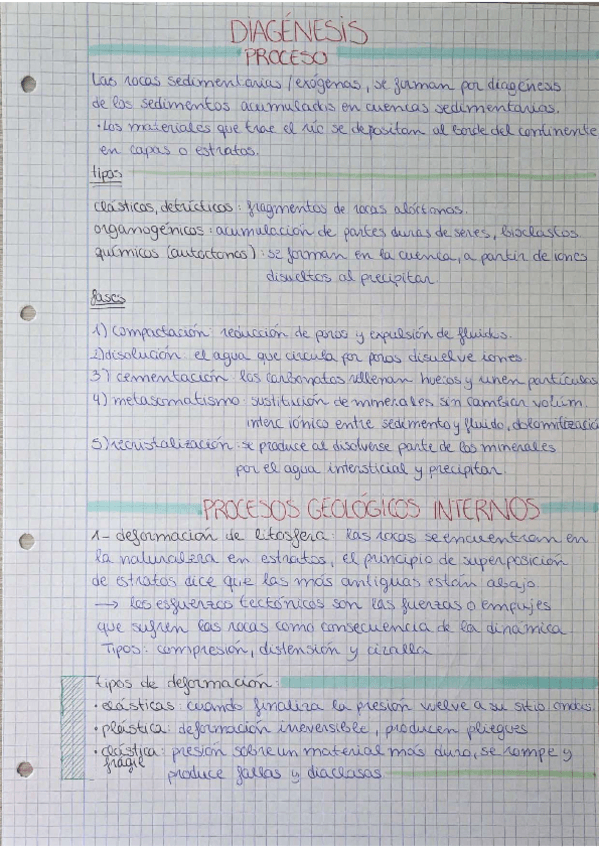 DIAGÉNESIS
PROCESO
Las rocas sedimentarias/exógenas, se forman por diagénesis
de los sedimentos acumulados en cuencas sedimentarias.
· Los materiales que trae el río se depositan al borde del continente
en capas o estratos.
tipos
clásticos, detríticos: fragmentos de rocas alóctonas.
organogénicos: acumulación de partes duras de seres, bioclastos
químicos (autóctonos): se forman en la cuenca, a partir de iones
disueltos al precipitar.
fases
1) compactación: reducción de poros y expulsión de fluidos.
2) disolución: el agua que circula por poros disuelve iones.
3) cementación: los carbonatos rellenan huecos y unen partículas
4) metasomatismo: sustitución de minerales sin cambiar volum.
interc iónico entre sedimento y fluido, dolomitizació
5) recristalización: se produce al disolverse parte de los minerales
por el agua intersticial y precipitar.
PROCESOS GEOLÓGICOS INTERNOS
1- deformación de litosfera: las rocas se encuentran en
la naturaleza en estratos, el principio de superposición
de estratos dice que las más antiguas están abajo
→ los esfuerzos tectónicos son las fuerzas o empujes
que sufren las rocas como consecuencia de la dinámica
Tipos: compresión, distensión y cizalla
tipos de deformación:
· elásticas: cuando finaliza la presión vuelve a su sitio, ondas.
· plástica: deformación irreversible, producen pliegues
· : presión sobre un material más duro, se rompe y
frágil
produce fallas y diaclasas